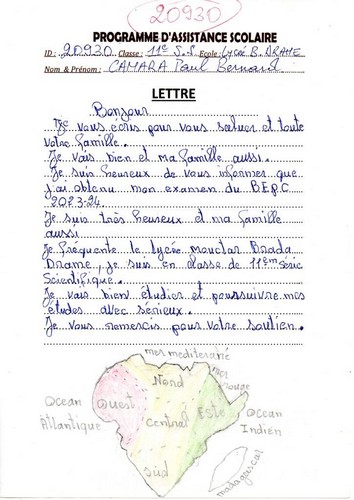 20930
PROGRAMME D'ASSISTANCE SCOLAIRE
ID : 20930 Classe : 11e S.S Ecole : Lycée B. DRAME
Nom & Prénom : CAMARA Paul Bernard
LETTRE
Bonjour
Je vous ecris pour vous saluer et toute
votre famille.
Je vais bien et ma famille aussi.
Je suis heureux de vous informer que
j'ai obtenu mon examen du B.E.P.C
2023-24.
Je suis très heureux et ma famille
aussi.
Je fréquente le Lycée mouctar Brada
Drame, je suis en classe de 11ème Série
Scientifique.
Je vais bien étudier et poursuivre mes
études avec sérieux.
Je vous remercis pour votre soutien.
mer mediteranié
mer rouge
Nord
Ocean Atlantique
Ouest
Central
Este
Ocean Indien
Sud
madagascar